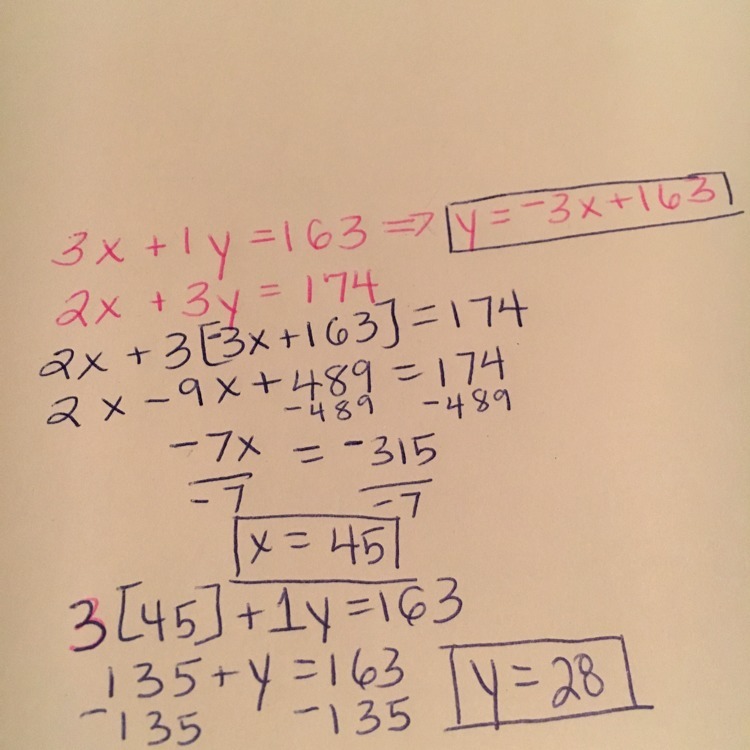 3x + 1y = 163 => y = -3x + 163
2x + 3y = 174
2x + 3[-3x + 163] = 174
2x - 9x + 489 = 174
-489 -489
-7x = -315
-7 -7
x = 45
3[45] + 1y = 163
135 + y = 163 y = 28
-135 -135